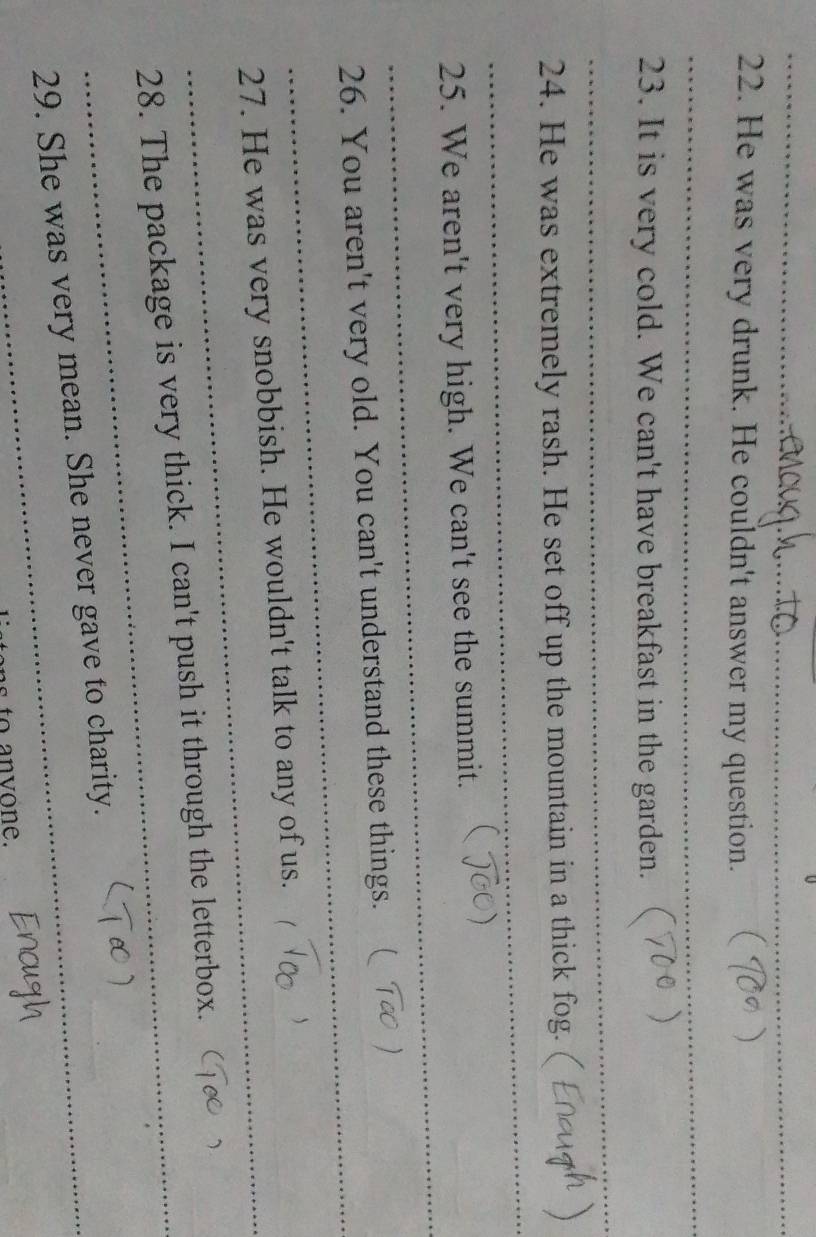 enough to
22. He was very drunk. He couldn't answer my question. (Too)
23. It is very cold. We can't have breakfast in the garden. (Too)
24. He was extremely rash. He set off up the mountain in a thick fog. (Enough)
25. We aren't very high. We can't see the summit. (Too)
26. You aren't very old. You can't understand these things. (Too)
27. He was very snobbish. He wouldn't talk to any of us. (Too)
28. The package is very thick. I can't push it through the letterbox. (Too)
29. She was very mean. She never gave to charity. (Too)
to anyone. Enough